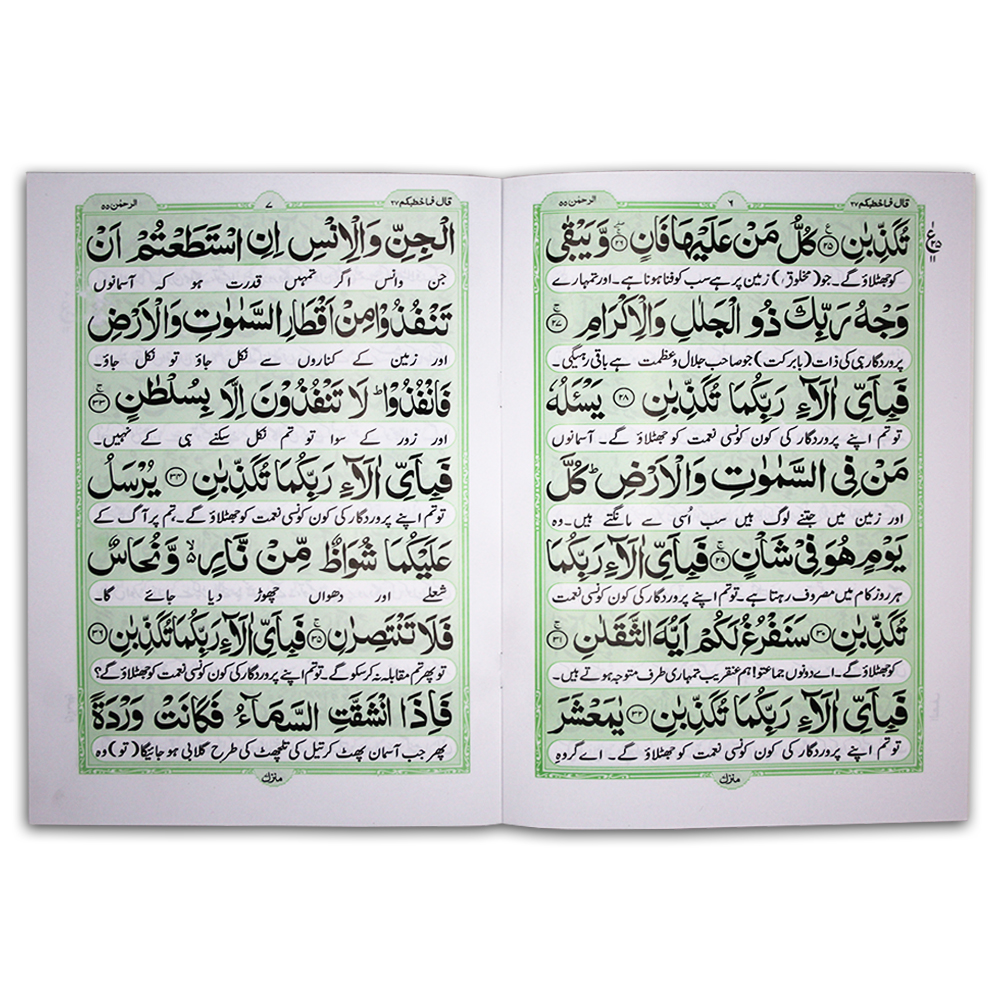 قال فما خطبکم ۲۷
۶
الرحمٰن ۵۵
تُكَذِّبٰنِ ﴿۲۵﴾ كُلُّ مَنْ عَلَيْهَا فَانٍ ﴿۲۶﴾ وَّيَبْقٰى
کو جھٹلاؤ گے۔ جو (مخلوق) زمین پر ہے سب کو فنا ہونا ہے۔ اور تمہارے
وَجْهُ رَبِّكَ ذُو الْجَلٰلِ وَالْاِكْرَامِ ﴿۲۷﴾
پروردگار ہی کی ذات (بابرکت) جو صاحب جلال و عظمت ہے باقی رہیگی۔
فَبِاَيِّ اٰلَآءِ رَبِّكُمَا تُكَذِّبٰنِ ﴿۲۸﴾ يَسْـَٔلُهٗ
تو تم اپنے پروردگار کی کون کونسی نعمت کو جھٹلاؤ گے۔ آسمانوں
مَنْ فِى السَّمٰوٰتِ وَالْاَرْضِ ؕ كُلَّ
اور زمین میں جتنے لوگ ہیں سب اُسی سے مانگتے ہیں۔ وہ
يَوْمٍ هُوَ فِيْ شَاْنٍ ﴿۲۹﴾ فَبِاَيِّ اٰلَآءِ رَبِّكُمَا
ہر روز کام میں مصروف رہتا ہے۔ تو تم اپنے پروردگار کی کون کونسی نعمت
تُكَذِّبٰنِ ﴿۳۰﴾ سَنَفْرُغُ لَكُمْ اَيُّهَ الثَّقَلٰنِ ﴿۳۱﴾
کو جھٹلاؤ گے۔ اے دونوں جماعتو! ہم عنقریب تمہاری طرف متوجہ ہوتے ہیں۔
فَبِاَيِّ اٰلَآءِ رَبِّكُمَا تُكَذِّبٰنِ ﴿۳۲﴾ يٰمَعْشَرَ
تو تم اپنے پروردگار کی کون کونسی نعمت کو جھٹلاؤ گے۔ اے گروہِ
قال فما خطبکم ۲۷
۷
الرحمٰن ۵۵
الْجِنِّ وَالْاِنْسِ اِنِ اسْتَطَعْتُمْ اَنْ
جن وانس اگر تمہیں قدرت ہو کہ آسمانوں
تَنْفُذُوْا مِنْ اَقْطَارِ السَّمٰوٰتِ وَالْاَرْضِ
اور زمین کے کناروں سے نکل جاؤ تو نکل جاؤ۔
فَانْفُذُوْا ؕ لَا تَنْفُذُوْنَ اِلَّا بِسُلْطٰنٍ ﴿۳۳﴾
اور زور کے سوا تو تم نکل سکنے ہی کے نہیں۔
فَبِاَيِّ اٰلَآءِ رَبِّكُمَا تُكَذِّبٰنِ ﴿۳۴﴾ يُرْسَلُ
تو تم اپنے پروردگار کی کون کونسی نعمت کو جھٹلاؤ گے۔ تم پر آگ کے
عَلَيْكُمَا شُوَاظٌ مِّنْ نَّارٍ ۙ وَّنُحَاسٌ
شعلے اور دھواں چھوڑ دیا جائے گا۔
فَلَا تَنْتَصِرٰنِ ﴿۳۵﴾ فَبِاَيِّ اٰلَآءِ رَبِّكُمَا تُكَذِّبٰنِ ﴿۳۶﴾
تو پھر تم مقابلہ نہ کر سکو گے۔ تو تم اپنے پروردگار کی کون کونسی نعمت کو جھٹلاؤ گے؟
فَاِذَا انْشَقَّتِ السَّمَآءُ فَكَانَتْ وَرْدَةً
پھر جب آسمان پھٹ کر تیل کی تلچھٹ کی طرح گلابی ہو جائیگا (تو) وہ